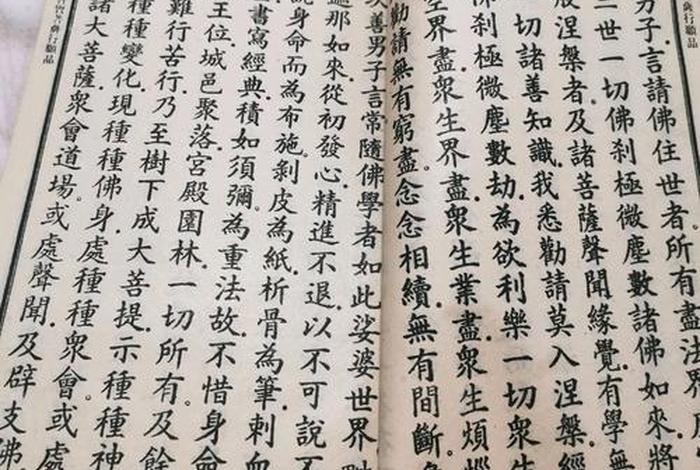 行願品
男子.言請佛住世者.所有盡法界
三世一切佛剎極微塵數諸佛如來將
般涅槃者.及諸菩薩聲聞緣覺.有學無
一切諸善知識.我悉勸請莫入涅槃.經
佛剎極微塵數劫.為欲利樂一切眾生
生界盡.眾生界盡.眾生業盡.眾生煩惱
勸請無有窮盡.念念相續.無有間斷.
次善男子.言常隨佛學者.如此娑婆世界
遮那如來.從初發心.精進不退.以不可說不
說身命而為布施.剝皮為紙.析骨為筆.刺血
書寫經典.積如須彌.為重法故.不惜身命
王位.城邑聚落.宮殿園林.一切所有.及餘
難行苦行.乃至樹下成大菩提.示種種神
種種變化.現種種佛身.處種種眾會.或處
諸大菩薩.眾會道場.或處聲聞.及辟支佛
行願品